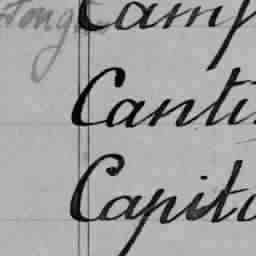 Camp
Canti
Capita